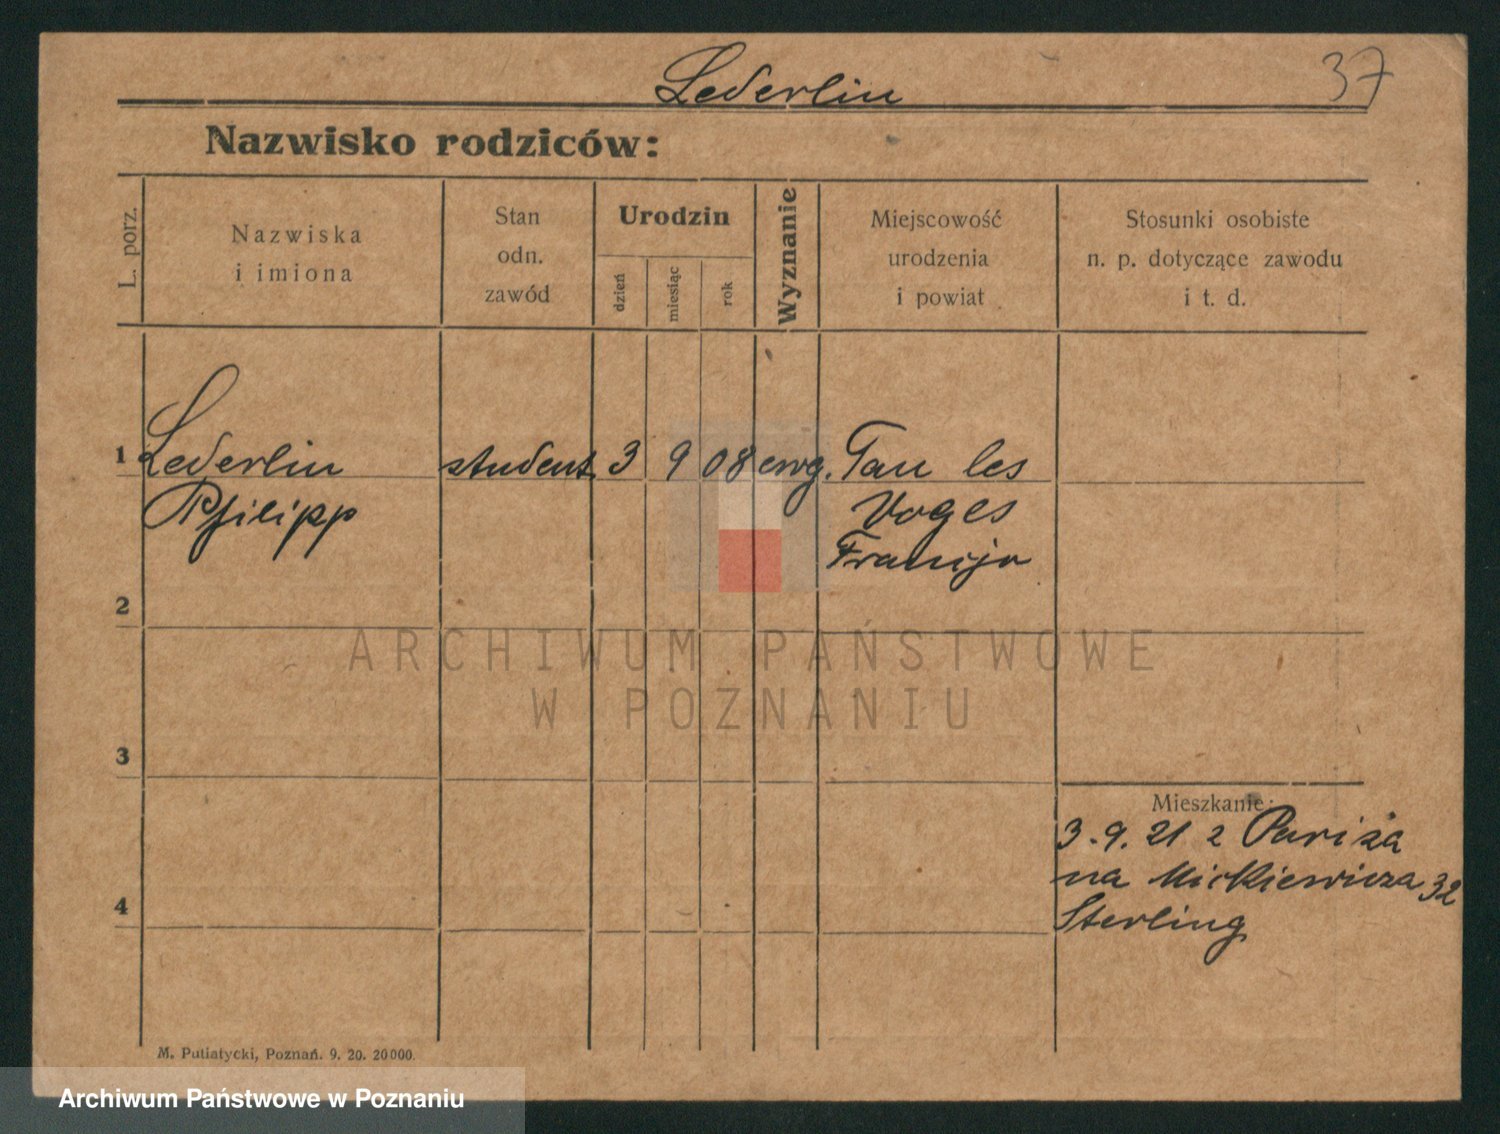 37
Lederlin
Nazwisko rodziców:
L. porz.
Nazwiska
i imiona
Stan
odn.
zawód
Urodzin
dzień
miesiąc
rok
Wyznanie
Miejscowość
urodzenia
i powiat
Stosunki osobiste
n. p. dotyczące zawodu
i t. d.
1 Lederlin student 3 9 08 ewg. Tau les
Philipp Voges
Francja
2
3
4
Mieszkanie:
3.9.21 z Pariża
na Mickiewicza 32
Sterling
M. Putiatycki, Poznań. 9. 20. 20000.
ARCHIWUM PAŃSTWOWE
W POZNANIU
Archiwum Państwowe w Poznaniu